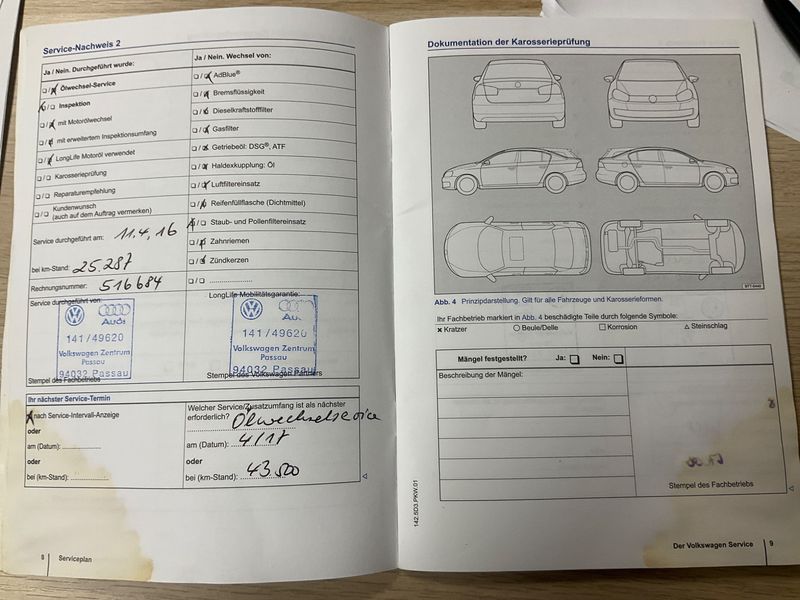 Service-Nachweis 2
Ja / Nein. Durchgeführt wurde:
Ölwechsel-Service
Inspektion
mit Motorölwechsel
mit erweitertem Inspektionsumfang
LongLife Motoröl verwendet
Karosserieprüfung
Reparaturempfehlung
Kundenwunsch
(auch auf dem Auftrag vermerken)
Service durchgeführt am: 11.4.16
bei km-Stand: 25.287
Rechnungsnummer: 516684
Ja / Nein. Wechsel von:
AdBlue®
Bremsflüssigkeit
Dieselkraftstofffilter
Gasfilter
Getriebeöl: DSG®, ATF
Haldexkupplung: Öl
Luftfiltereinsatz
Reifenfüllflasche (Dichtmittel)
Staub- und Pollenfiltereinsatz
Zahnriemen
Zündkerzen
Service durchgeführt von:
Audi
141/49620
Volkswagen Zentrum
Passau
94032 Passau
Stempel des Fachbetriebs
LongLife Mobilitätsgarantie:
141/49620
Volkswagen Zentrum
Passau
94032 Passau
Stempel des Volkswagen Partners
Ihr nächster Service-Termin
nach Service-Intervall-Anzeige
oder
am (Datum):
oder
bei (km-Stand):
Welcher Service/Zusatzumfang ist als nächster
erforderlich? Ölwechselservice
am (Datum): 4/17
oder
bei (km-Stand): 43.500
8 Serviceplan
Dokumentation der Karosserieprüfung
Abb. 4 Prinzipdarstellung. Gilt für alle Fahrzeuge und Karosserieformen.
Ihr Fachbetrieb markiert in Abb. 4 beschädigte Teile durch folgende Symbole:
Kratzer Beule/Delle Korrosion Steinschlag
Mängel festgestellt? Ja: Nein:
Beschreibung der Mängel:
Stempel des Fachbetriebs
142.5D3.PKW.01
Der Volkswagen Service 9